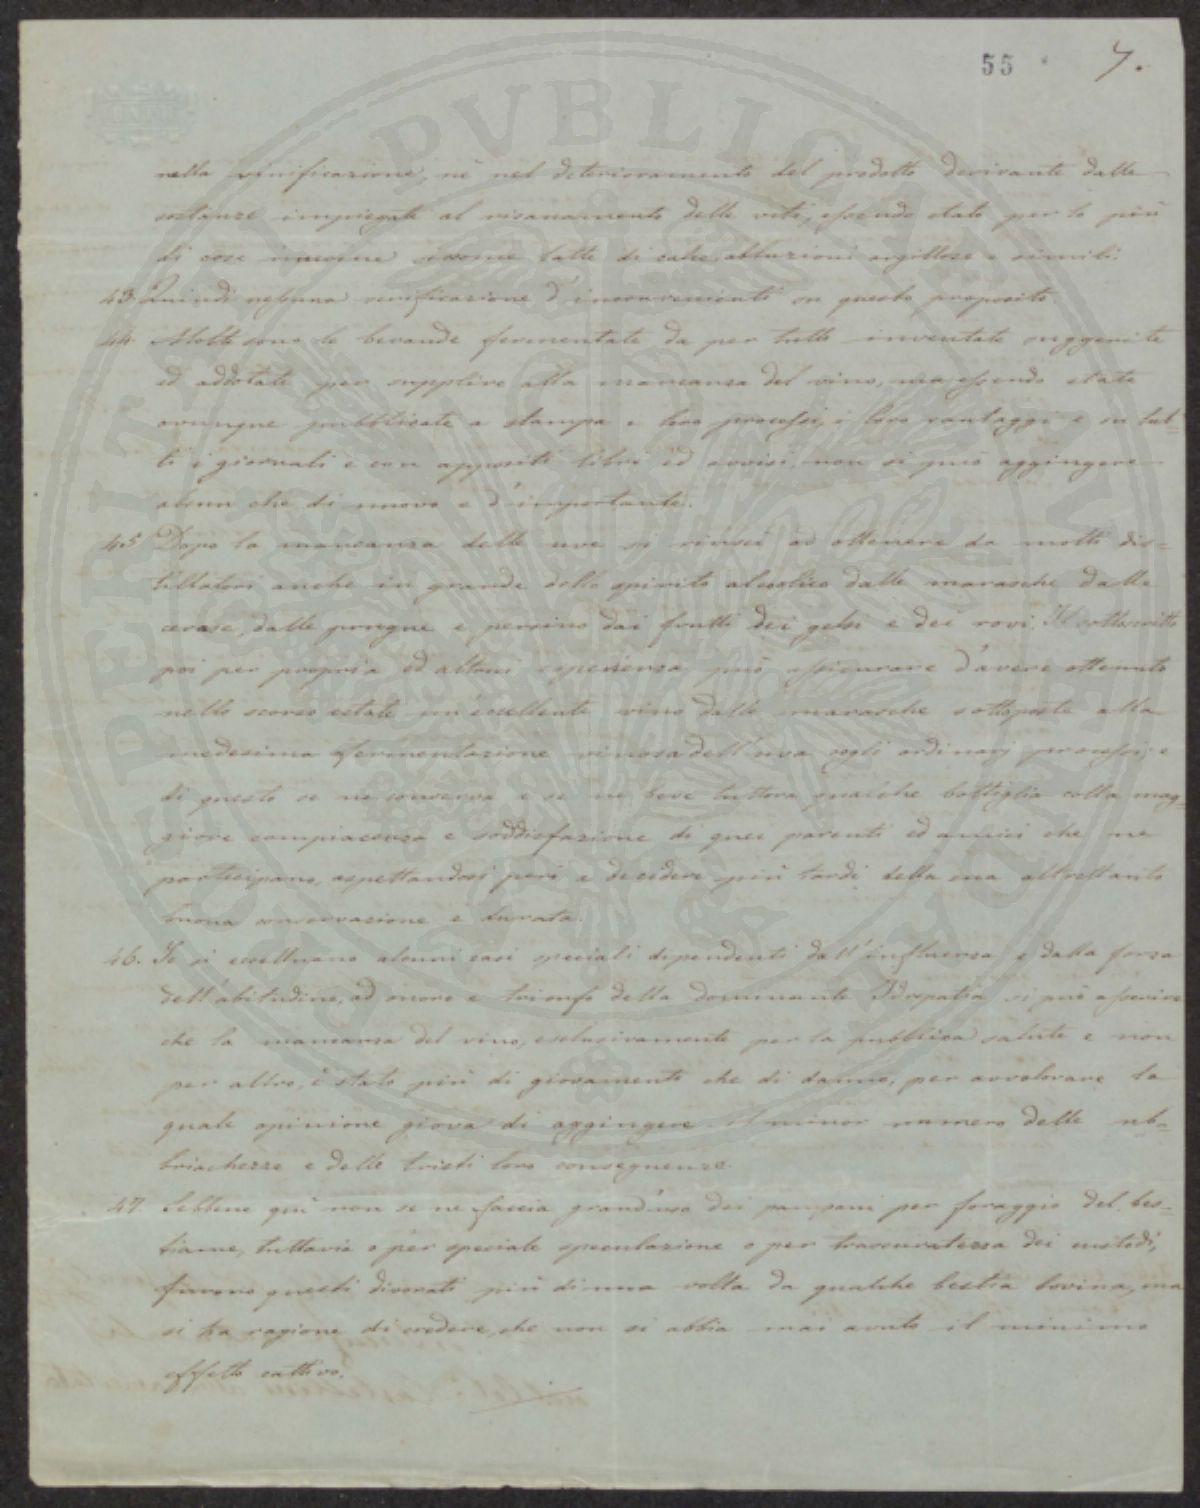 55 7.
nella vinificazione, nè nel deterioramento del prodotto derivante dalle
sostanze impiegate al risanamento delle viti, essendo stato per lo più
di cose innocue siccome latte di calce, abluzioni argillose e simili.
43. Quindi nessuna verificazione d'inconvenienti su questo proposito.
44. Molte sono le bevande fermentate da per tutto inventate suggerite
ed addotate per supplire alla mancanza del vino, ma essendo state
ovunque pubblicate a stampa i loro processi, i loro vantaggi e su tut=
ti i giornali e con appositi libri ed avvisi, non si può aggingere
alcun che di nuovo e d'importante.
45. Dopo la mancanza delle uve si riuscì ad ottenere da molti dis=
tillatori anche in grande dello spirito alcoolico dalle marasche dalle
cerase, dalle prugne e persino dai frutti dei gelsi e dei rovi. Il sottoscritto
poi per propria ed altrui esperienza può assicurare d'avere ottenuto
nello scorso estate un'eccellente vino dalle marasche sottoposte alla
medesima fermentazione vinosa dell'uva cogli ordinarj processi; e
di questo se ne conserva e se ne beve tuttora qualche bottiglia colla mag=
giore compiacenza e soddisfazione di quei parenti ed amici che ne
partecipano, aspettandosi però a decidere più tardi della sua altrettanto
buona conservazione e durata.
46. Se si eccettuano alcuni casi speciali dipendenti dall'influenza e dalla forza
dell'abitudine, ad onore e trionfo della dominante Idropatia si può asserire
che la mancanza del vino, esclusivamente per la pubblica salute e non
per altro, è stato più di giovamento che di danno, per avvalorare la
quale opinione giova di aggingere il minor numero delle ub=
briachezze e delle tristi loro conseguenze.
47. Sebbene quì non se ne faccia grand'uso dei pampani per foraggio del bes=
tiame, tuttavia o per speciale speculazione o per trascuratezza dei custodi,
furono questi divorati più di una volta da qualche bestia bovina, ma
si ha ragione di credere, che non si abbia mai avuto il minimo
effetto cattivo.